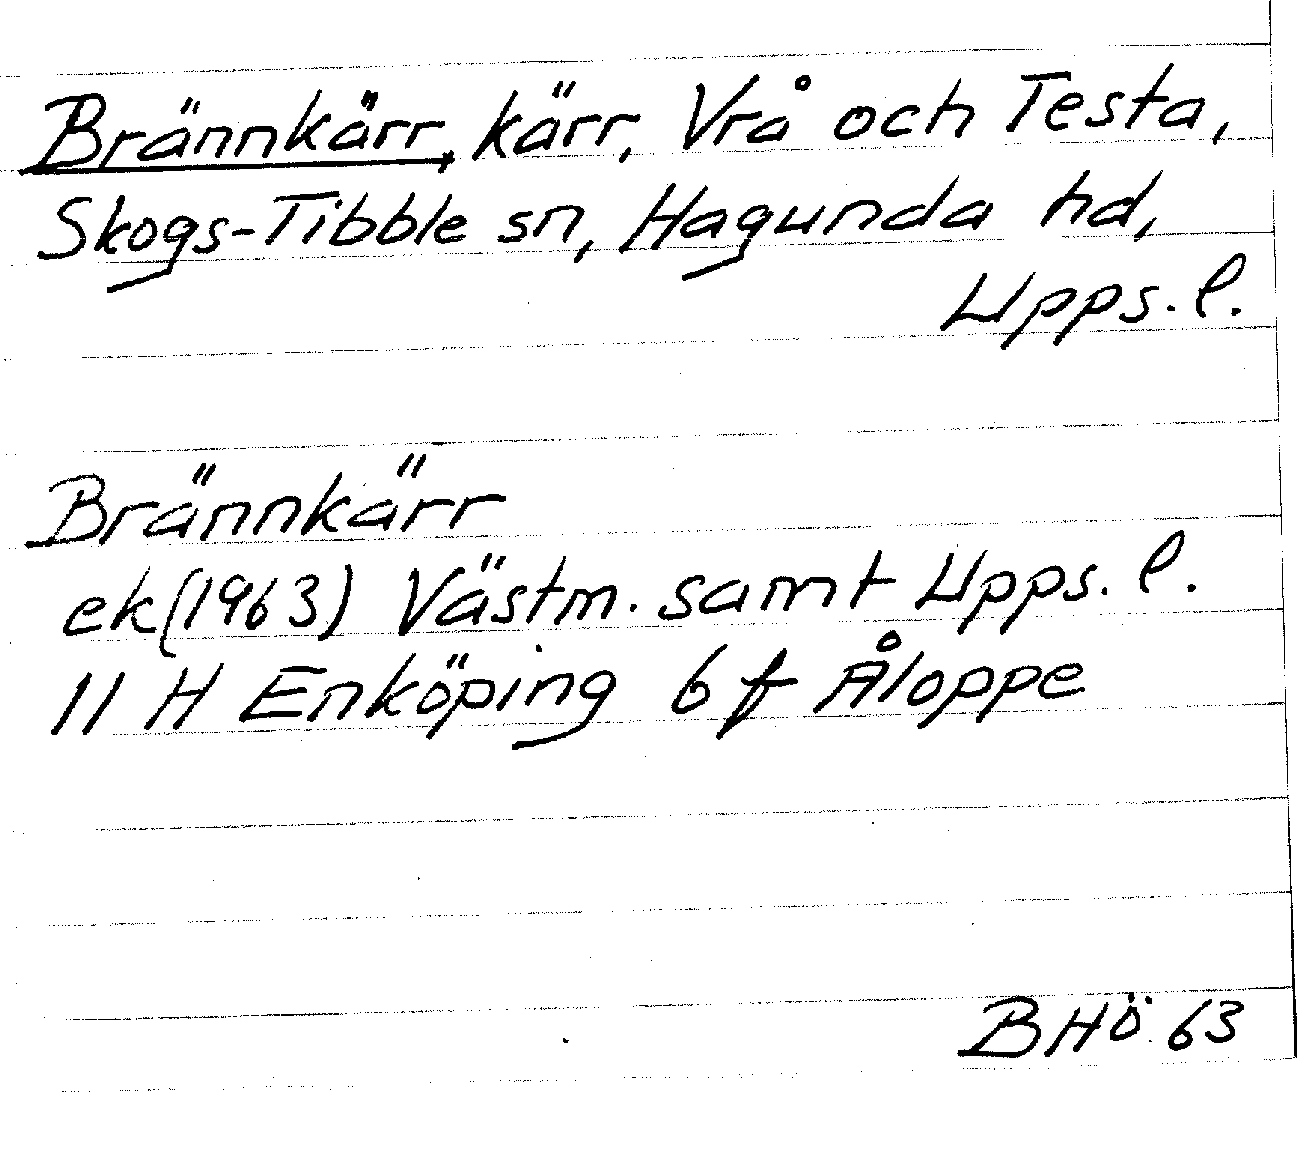 Brännkärr, kärr, Vrå och Testa,
Skogs-Tibble sn, Hagunda hd,
Upps. l.
Brännkärr
ek (1963) Västm. samt Upps. l.
11 H Enköping 6 f Åloppe
BHö 63